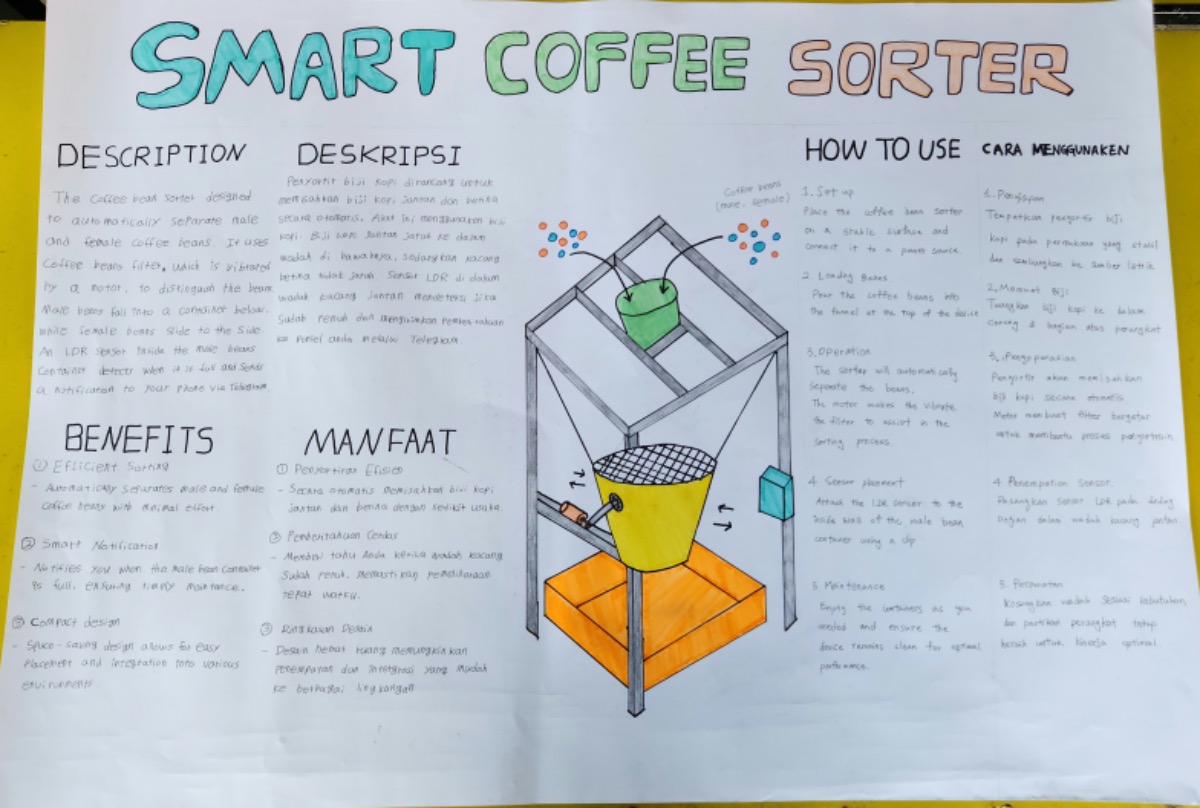 SMART COFFEE SORTER
DESCRIPTION
The Coffee bean Sorter designed
to automatically separate male
and female coffee beans. It uses
Coffee beans filter, which is vibrated
by a motor, to distinguish the bean
Male beans fall into a container below,
while female beans slide to the Side.
An LDR Sensor Inside the male beans
Container detects when it is full and Sends
a notification to your phone via Telegram.
DESKRIPSI
Penyortir biji kopi dirancang untuk
memisahkan biji kopi Jantan dan betina
secara otomatis. Alat ini menggunakan biji
kopi. Biji kopi Jantan Jatuh ke dalam
wadah di bawahnya, sedangkan kacang
betina tidak Jatuh Sensor LDR di dalam
wadah kacang Jantan mendeteksi Jika
Sudah penuh dan mengirimkan Pemberitahuan
ke Ponsel anda melalui Telegram.
BENEFITS
① Efficient Sorting
- Automatically Separates male and female
coffee beans with minimal effort.
② Smart Notification
- Notifies you when the male bean Container
is full, ensuring timely maintance.
③ Compact design
- Space-saving design allows for easy
Placement and integration into various
environments
MANFAAT
① Penyortiran Efisien
- Secara otomatis Memisahkan biji kopi
Jantan dan betina dengan sedikit usaha.
② Pemberitahuan Cerdas
- Memberi tahu Anda ketika wadah kacang
Sudah penuh, memastikan pemeliharaan
tepat waktu.
③ Ringkasan Desain
- Desain hemat ruang memungkinkan
Penempatan dan integrasi yang mudah
ke berbagai lingkungan
Coffee beans
(male, female)
HOW TO USE
1. Set up
Place the coffee bean sorter
on a stable surface and
connect it to a power source.
2. Loading Beans
Pour the coffee beans into
the funnel at the top of the device
3. Operation
The sorter will automatically
separate the beans.
The motor makes the vibrate
the filter to assist in the
sorting process.
4. Sensor placement
Attach the LDR sensor to the
inside wall of the male bean
container using a clip
5 Maintenance
Empty the containers as you
needed and ensure the
device remains clean for optimal
performance.
CARA MENGGUNAKEN
1. Persiapan
Tempatkan penyortir biji
kopi pada permukaan yang stabil
dan sambungkan ke sumber listrik
2. Memuat Biji
Tuangkan biji kopi ke dalam
corong di bagian atas perangkat
3. Pengoperasian
Penyortir akan memisahkan
biji kopi secara otomatis
Motor membuat filter bergetar
untuk membantu proses penyortiran.
4. Penempatan Sensor.
Pasangkan sensor LDR pada dinding
bagian dalam wadah kacang jantan
5. Perawatan
Kosongkan wadah sesuai kebutuhan,
dan pastikan perangkat tetap
bersih untuk kinerja optimal.